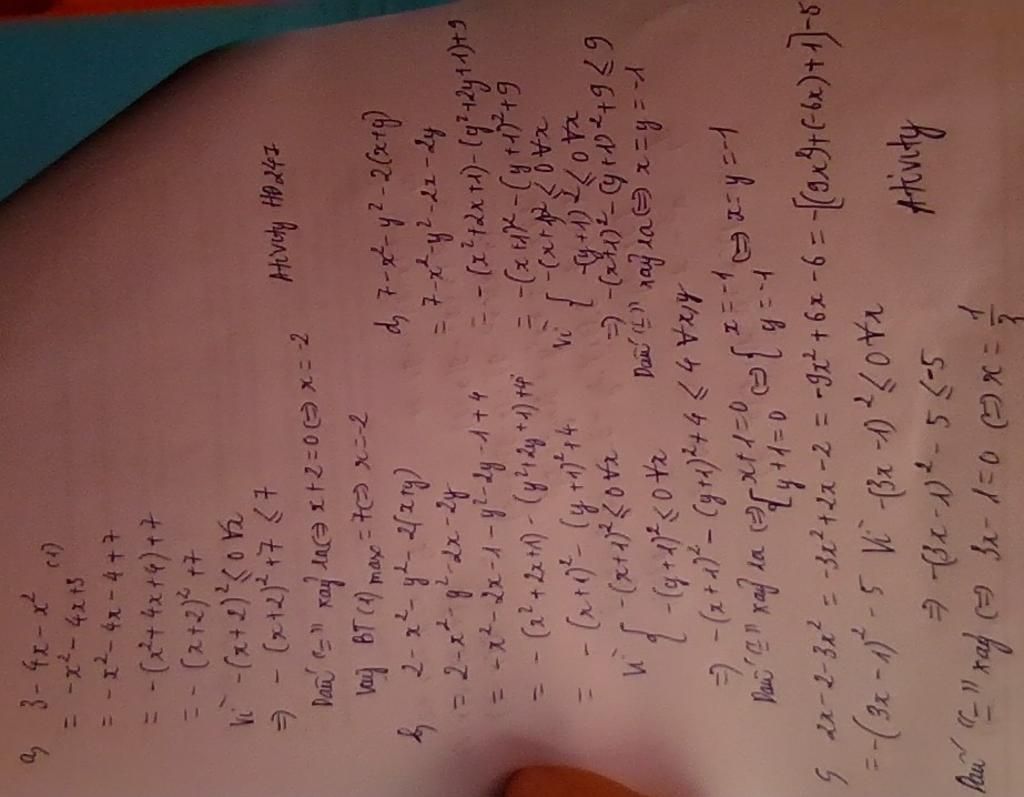 a, 3 - 4x - x²
= -x² - 4x + 3 (1)
= -x² - 4x - 4 + 7
= -(x² + 4x + 4) + 7
= -(x + 2)² + 7
Vì -(x + 2)² ≤ 0 ∀x
⇒ -(x + 2)² + 7 ≤ 7
Dấu "=" xảy ra ⇔ x + 2 = 0 ⇔ x = -2
Vậy BT(1) max = 7 ⇔ x = -2
Ativity HD247
b, 2 - x² - y² - 2(x+y)
= 2 - x² - y² - 2x - 2y
= -x² - 2x - 1 - y² - 2y - 1 + 4
= -(x² + 2x + 1) - (y² + 2y + 1) + 4
= -(x + 1)² - (y + 1)² + 4
Vì { -(x + 1)² ≤ 0 ∀x
-(y + 1)² ≤ 0 ∀x
⇒ -(x + 1)² - (y + 1)² + 4 ≤ 4 ∀x,y
Dấu "=" xảy ra ⇔ { x + 1 = 0 ⇔ { x = -1 ⇔ x = y = -1
y + 1 = 0 y = -1
d, 7 - x² - y² - 2(x+y)
= 7 - x² - y² - 2x - 2y
= -(x² + 2x + 1) - (y² + 2y + 1) + 9
= -(x + 1)² - (y + 1)² + 9
Vì { -(x + 1)² ≤ 0 ∀x
-(y + 1)² ≤ 0 ∀x
⇒ -(x + 1)² - (y + 1)² + 9 ≤ 9
Dấu "=" xảy ra ⇔ x = y = -1
c, 2x - 2 - 3x² = -3x² + 2x - 2 = -9x² + 6x - 6 = -[(9x² + (-6x) + 1] - 5
= -(3x - 1)² - 5 Vì -(3x - 1)² ≤ 0 ∀x
⇒ -(3x - 1)² - 5 ≤ -5
Dấu "=" xảy ⇔ 3x - 1 = 0 ⇔ x = 1/3
Ativity